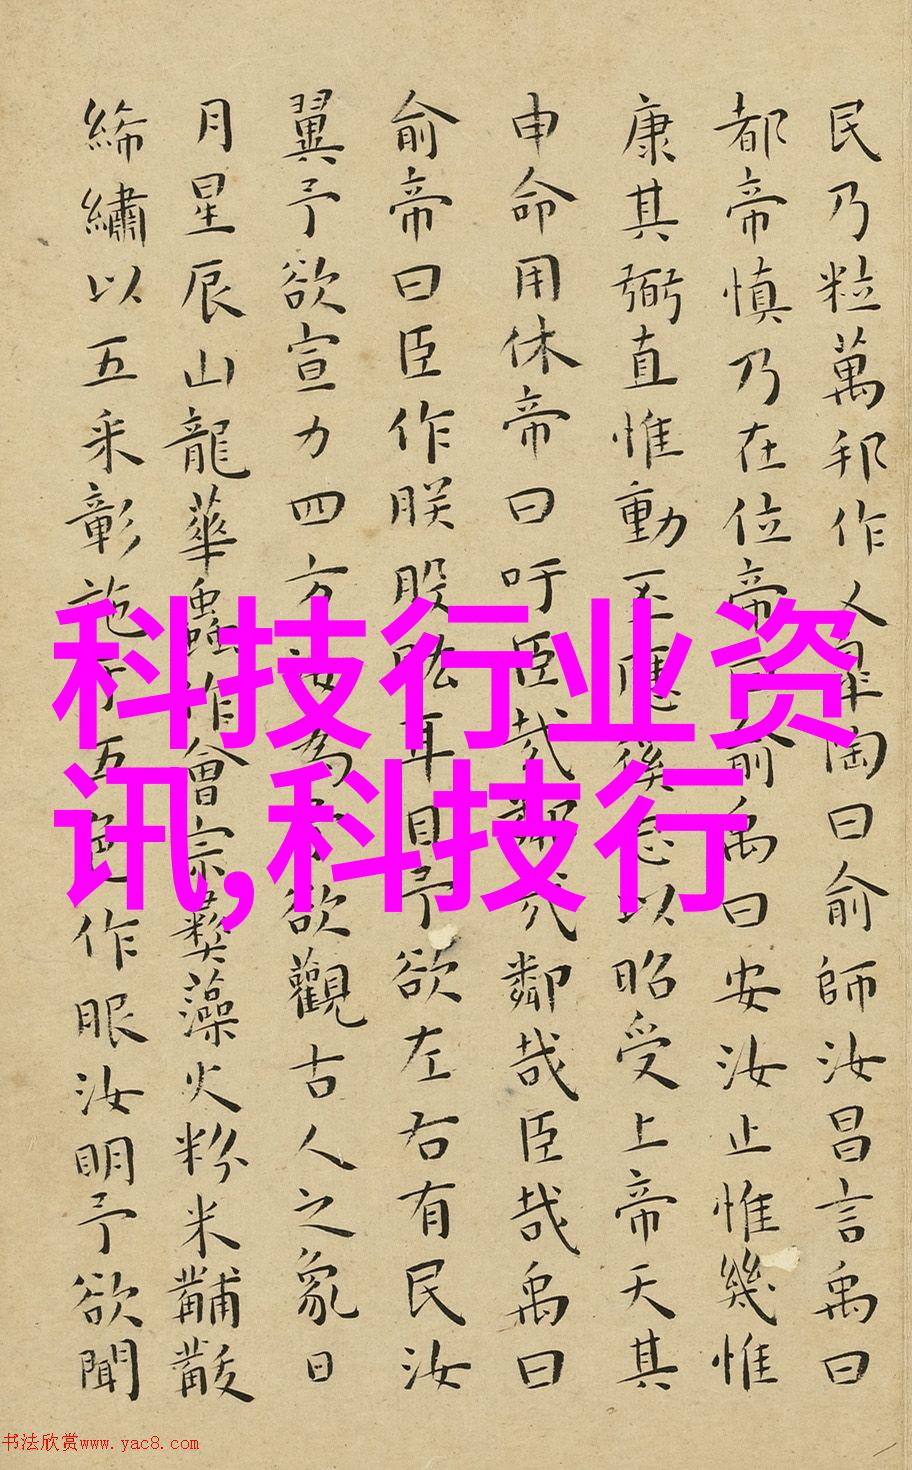 民乃粒萬邦作乂皐陶曰俞師汝昌言禹曰
都帝慎乃在位帝曰俞禹曰安汝止惟幾惟
康其弼直惟動丕應徯志以昭受上帝天其
申命用休帝曰吁臣哉鄰哉鄰哉臣哉禹曰
俞帝曰臣作朕股肱耳目予欲左右有民汝
翼予欲宣力四方汝為予欲觀古人之象日
月星辰山龍華蟲作會宗彝藻火粉米黼黻
絺繡以五采彰施于五色作服汝明予欲聞
科技行业资
讯,科技行
书法欣赏www.yac8.com